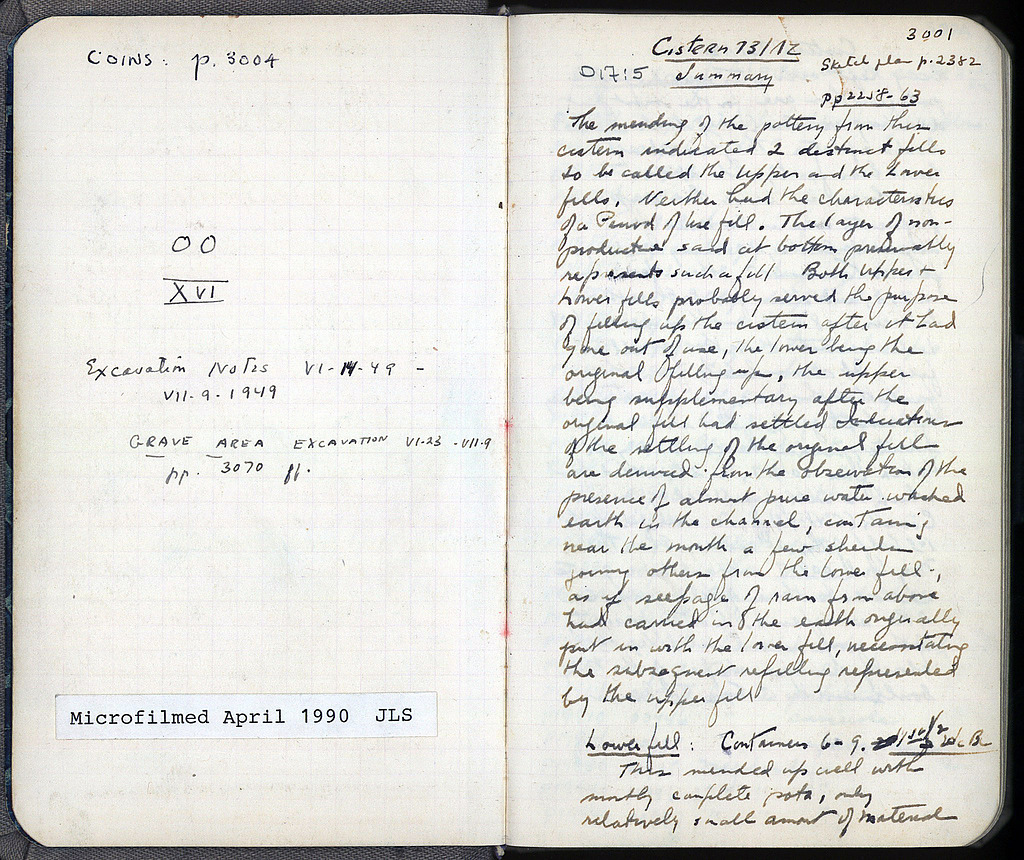 COINS: p. 3004
OO
XVI
Excavation Notes VI-14-49 -
VII-9-1949
GRAVE AREA EXCAVATION VI-23-VII-9
pp. 3070 ff.
Microfilmed April 1990 JLS
3001
Cistern 73/ΙΖ
Sketch plan p. 2382
D17:5 Summary
pp 2258-63
The mending of the pottery from this
cistern indicated 2 distinct fills
to be called the Upper and the Lower
fills. Neither had the characteristics
of a Period of Use fill. The layer of non-
productive sand at bottom presumably
represents such a fill Both Upper +
Lower fills probably served the purpose
of filling up the cistern after it had
gone out of use, the lower being the
original filling up, the upper
being supplementary after the
original fill had settled Indications
of the settling of the original fill
are derived from the observation of the
presence of almost pure water-washed
earth in the channel, containing
near the mouth a few sherds
joining others from the lower fill,
as if seepage of rain from above
had carried in the earth originally
put in with the lower fill, necessitating
the subsequent refilling represented
by the upper fill
Lower fill: Containers 6-9. 1st 1/2 2d c BC
This mended up well with
mostly complete pots, only
relatively small amont of material